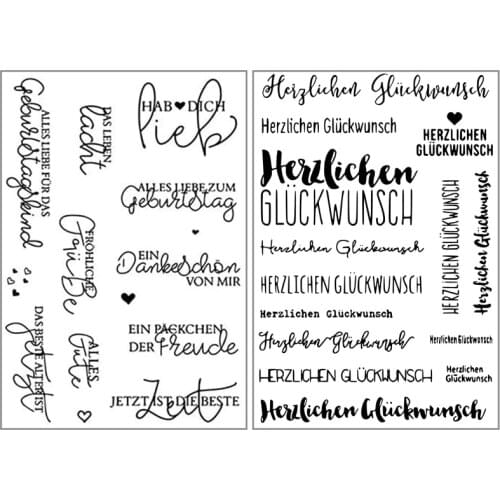 ALLES LIEBE FÜR DAS
Geburtstagskind
DAS LEBEN
lacht
HAB ♥ DICH
lieb
ALLES LIEBE ZUM
Geburtstag
FRÖHLICHE
Grüße
EIN
Dankeschön
VON MIR
DAS BESTE ALTER IST
jetzt
ALLES
Gute
EIN PÄCKCHEN
DER Freude
JETZT IST DIE BESTE
Zeit
Herzlichen Glückwunsch
Herzlichen Glückwunsch
HERZLICHEN
GLÜCKWUNSCH
Herzlichen
GLÜCKWUNSCH
HERZLICHEN GLÜCKWUNSCH
Herzlichen Glückwunsch
Herzlichen Glückwunsch
HERZLICHEN GLÜCKWUNSCH
Herzlichen Glückwunsch
Herzlichen Glückwunsch
Herzlichen Glückwunsch
HERZLICHEN GLÜCKWUNSCH
Herzlichen
Glückwunsch
Herzlichen Glückwunsch